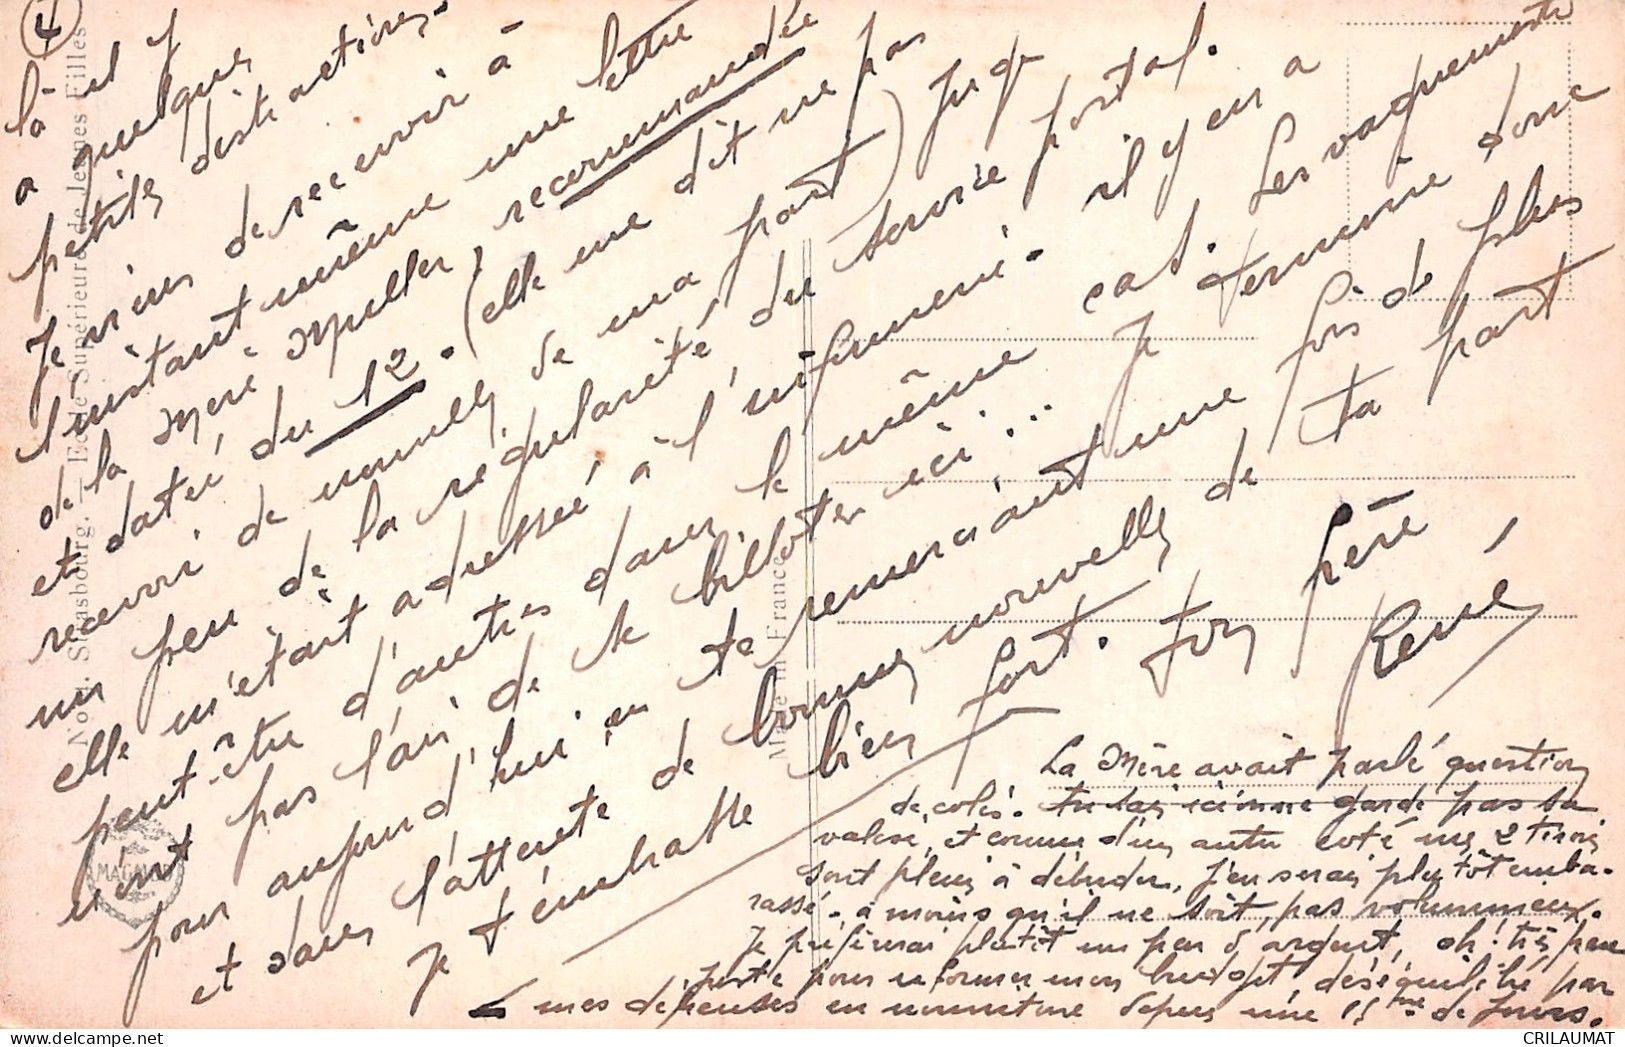 4
là il y
a quelques
petites distractions.
Je viens de recevoir à
l'instant même une lettre
de la Mère Muller, recommandée
et datée du 12. (elle me dit ne pas
recevoir de nouvelles de ma part) Jusqu
un peu de la régularité du service postal.
elle m'était adressée à l'infirmerie. il y en a
peut-être d'autres dans le même cas. Les vaguemestres
n'ont pas l'air de se biloter ici... Je termine donc
pour aujourd'hui en te remerciant une fois de plus
et dans l'attente de bonnes nouvelles de ta part
Je t'embrasse bien fort. Ton frère
René
La Mère avait parlé question
de colis. garde pas sa
valise, et comme d'un autre coté mes 2
sont pleins à déborder, j'en serais plutôt emba-
rassé. à moins qu'il ne soit, pas volumineux.
Je préfèrerai plutôt un peu d'argent, oh! très peu
juste pour reformer mon budget, déséquilibré par
mes dépenses en nourriture depuis une 15ne de jours.
Strasbourg. — Ecole Supérieure de Jeunes Filles
Made in France
MAGMA
CRILAUMAT